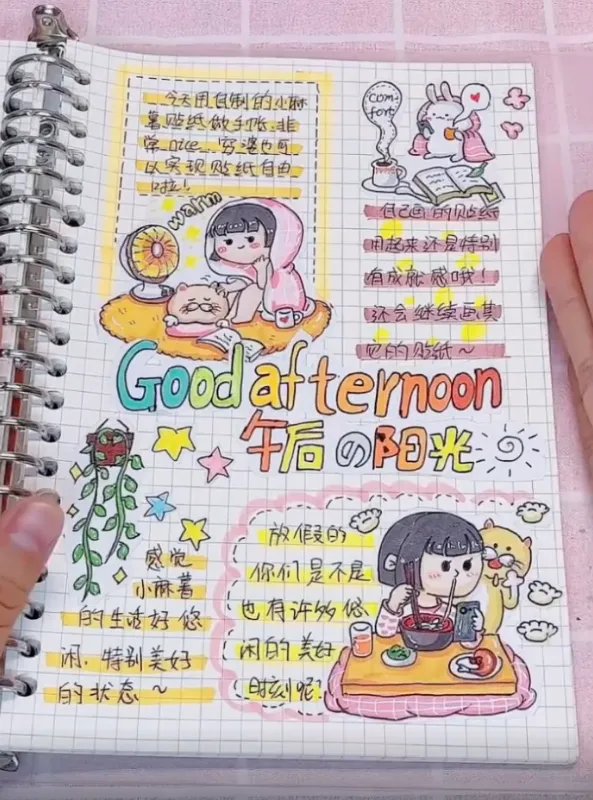 今天用自制的小麻
薯贴纸做手账，非
常nice，穷婆也可
以实现贴纸自由
啦！
warm
com-
fort
自己画的贴纸
用起来还是特别
有成就感哦！
还会继续画其
它的贴纸～
Good afternoon
午后の阳光
感觉
小麻薯
的生活好悠
闲，特别美好
的状态～
放假的
你们是不是
也有许多悠
闲的美好
时刻呢？